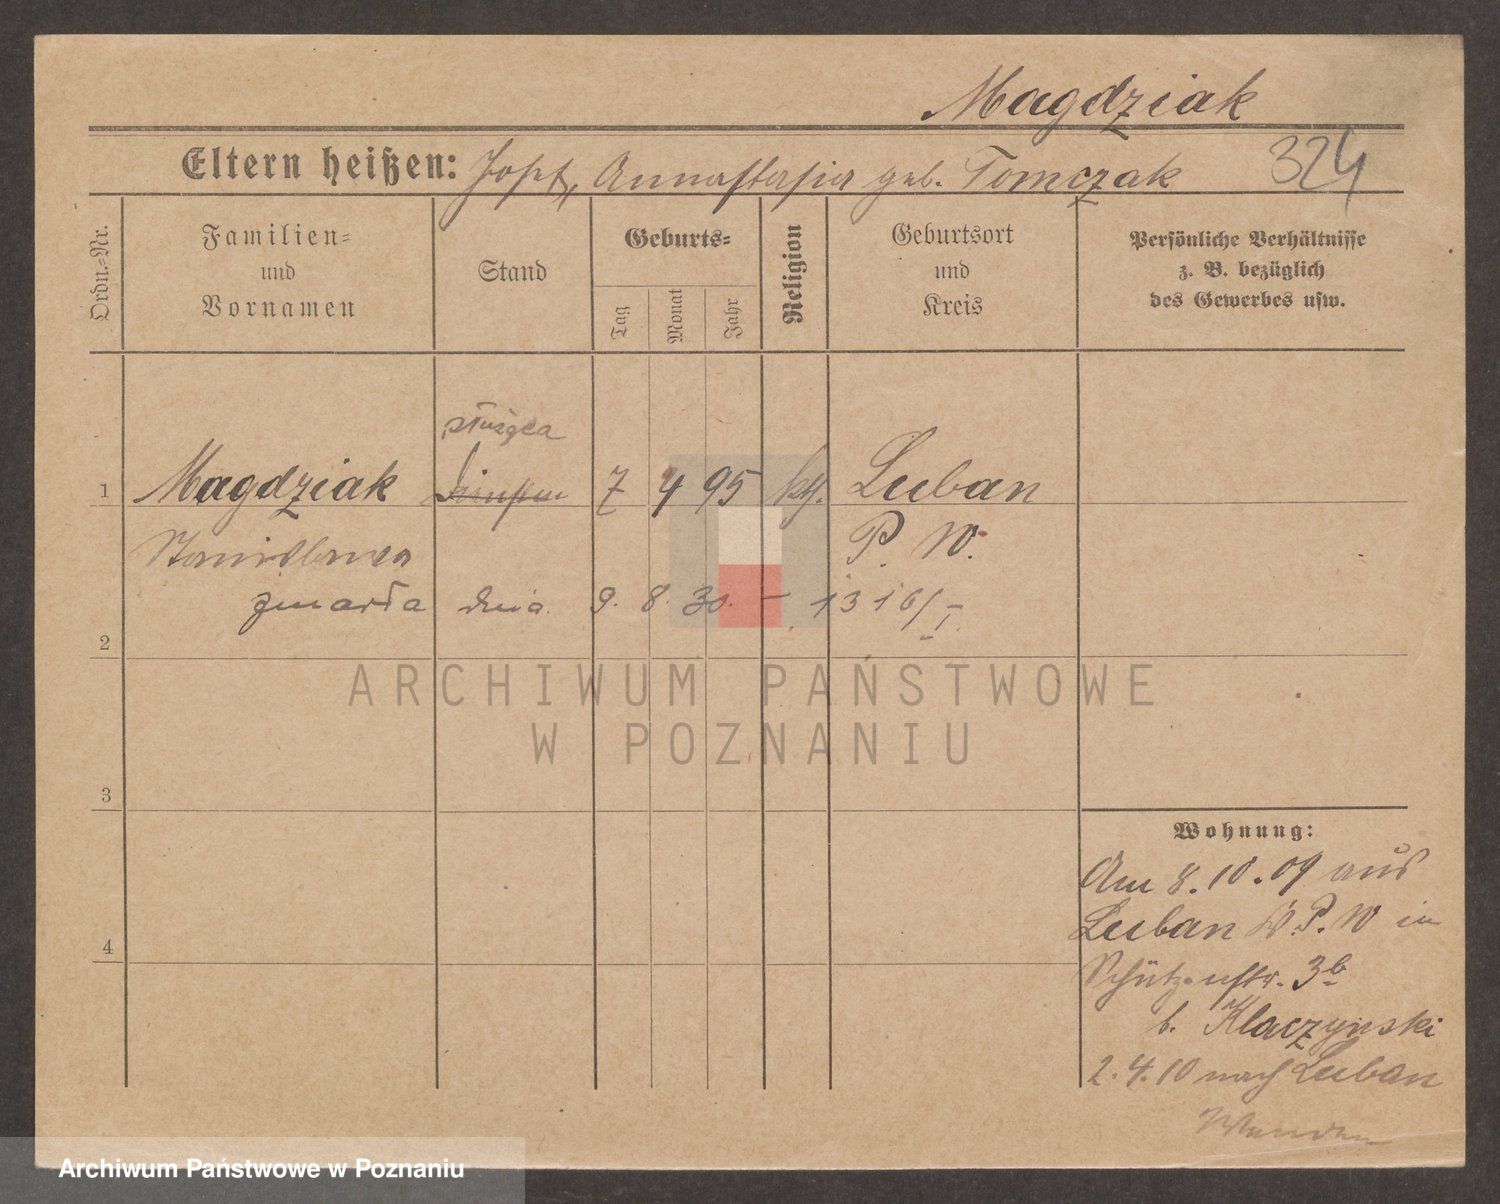 Magdziak
Eltern heißen: Josef, Annastasia geb. Tomczak
324
Ordn.=Nr.
Familien=
und
Vornamen
Stand
Geburts=
Tag
Monat
Jahr
Religion
Geburtsort
und
Kreis
Persönliche Verhältnisse
z. B. bezüglich
des Gewerbes usw.
służąca
1 Magdziak 7 4 95 kth. Luban
Stanislawa P. W.
zmarła dnia 9. 8. 30. – 1310/I.
2
ARCHIWUM PAŃSTWOWE
W POZNANIU
3
4
Wohnung:
Am 8.10.09 aus
Luban P. W in
Schützenstr. 3b
b. Klaczynski
2.4.10 nach Luban
Wenden
Archiwum Państwowe w Poznaniu